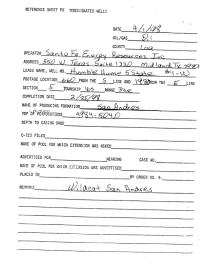 REFERENCE SHEET FO UNDESIGNATED WELLS
DATE 4/1/98
OIL/GAS Oil
COUNTY Lea
OPERATOR Santa Fe Energy Resources Inc
ADDRESS 550 W Texas Suite 1330 Midland Tx 79701
LEASE NAME, WELL NO. Humble Hume 5 State #1-W
FOOTAGE LOCATION 660 FROM THE S LINE AND 1980 FROM THE E LINE
SECTION 5 TOWNSHIP 16S RANGE 34E
COMPLETION DATE 2/25/98
NAME OF PRODUCING FORMATION San Andres
TOP OF PERFORATIONS 4984-5040
DEPTH TO CASING SHOE
C-123 FILED
NAME OF POOL FOR WHICH EXTENSION WAS ASKED
ADVERTISED FOR HEARING CASE NO.
NAME OF POOL FOR WHICH EXTENSION WAS ADVERTISED
PLACED IN BY ORDER NO. R-
REMARKS Wildcat San Andres